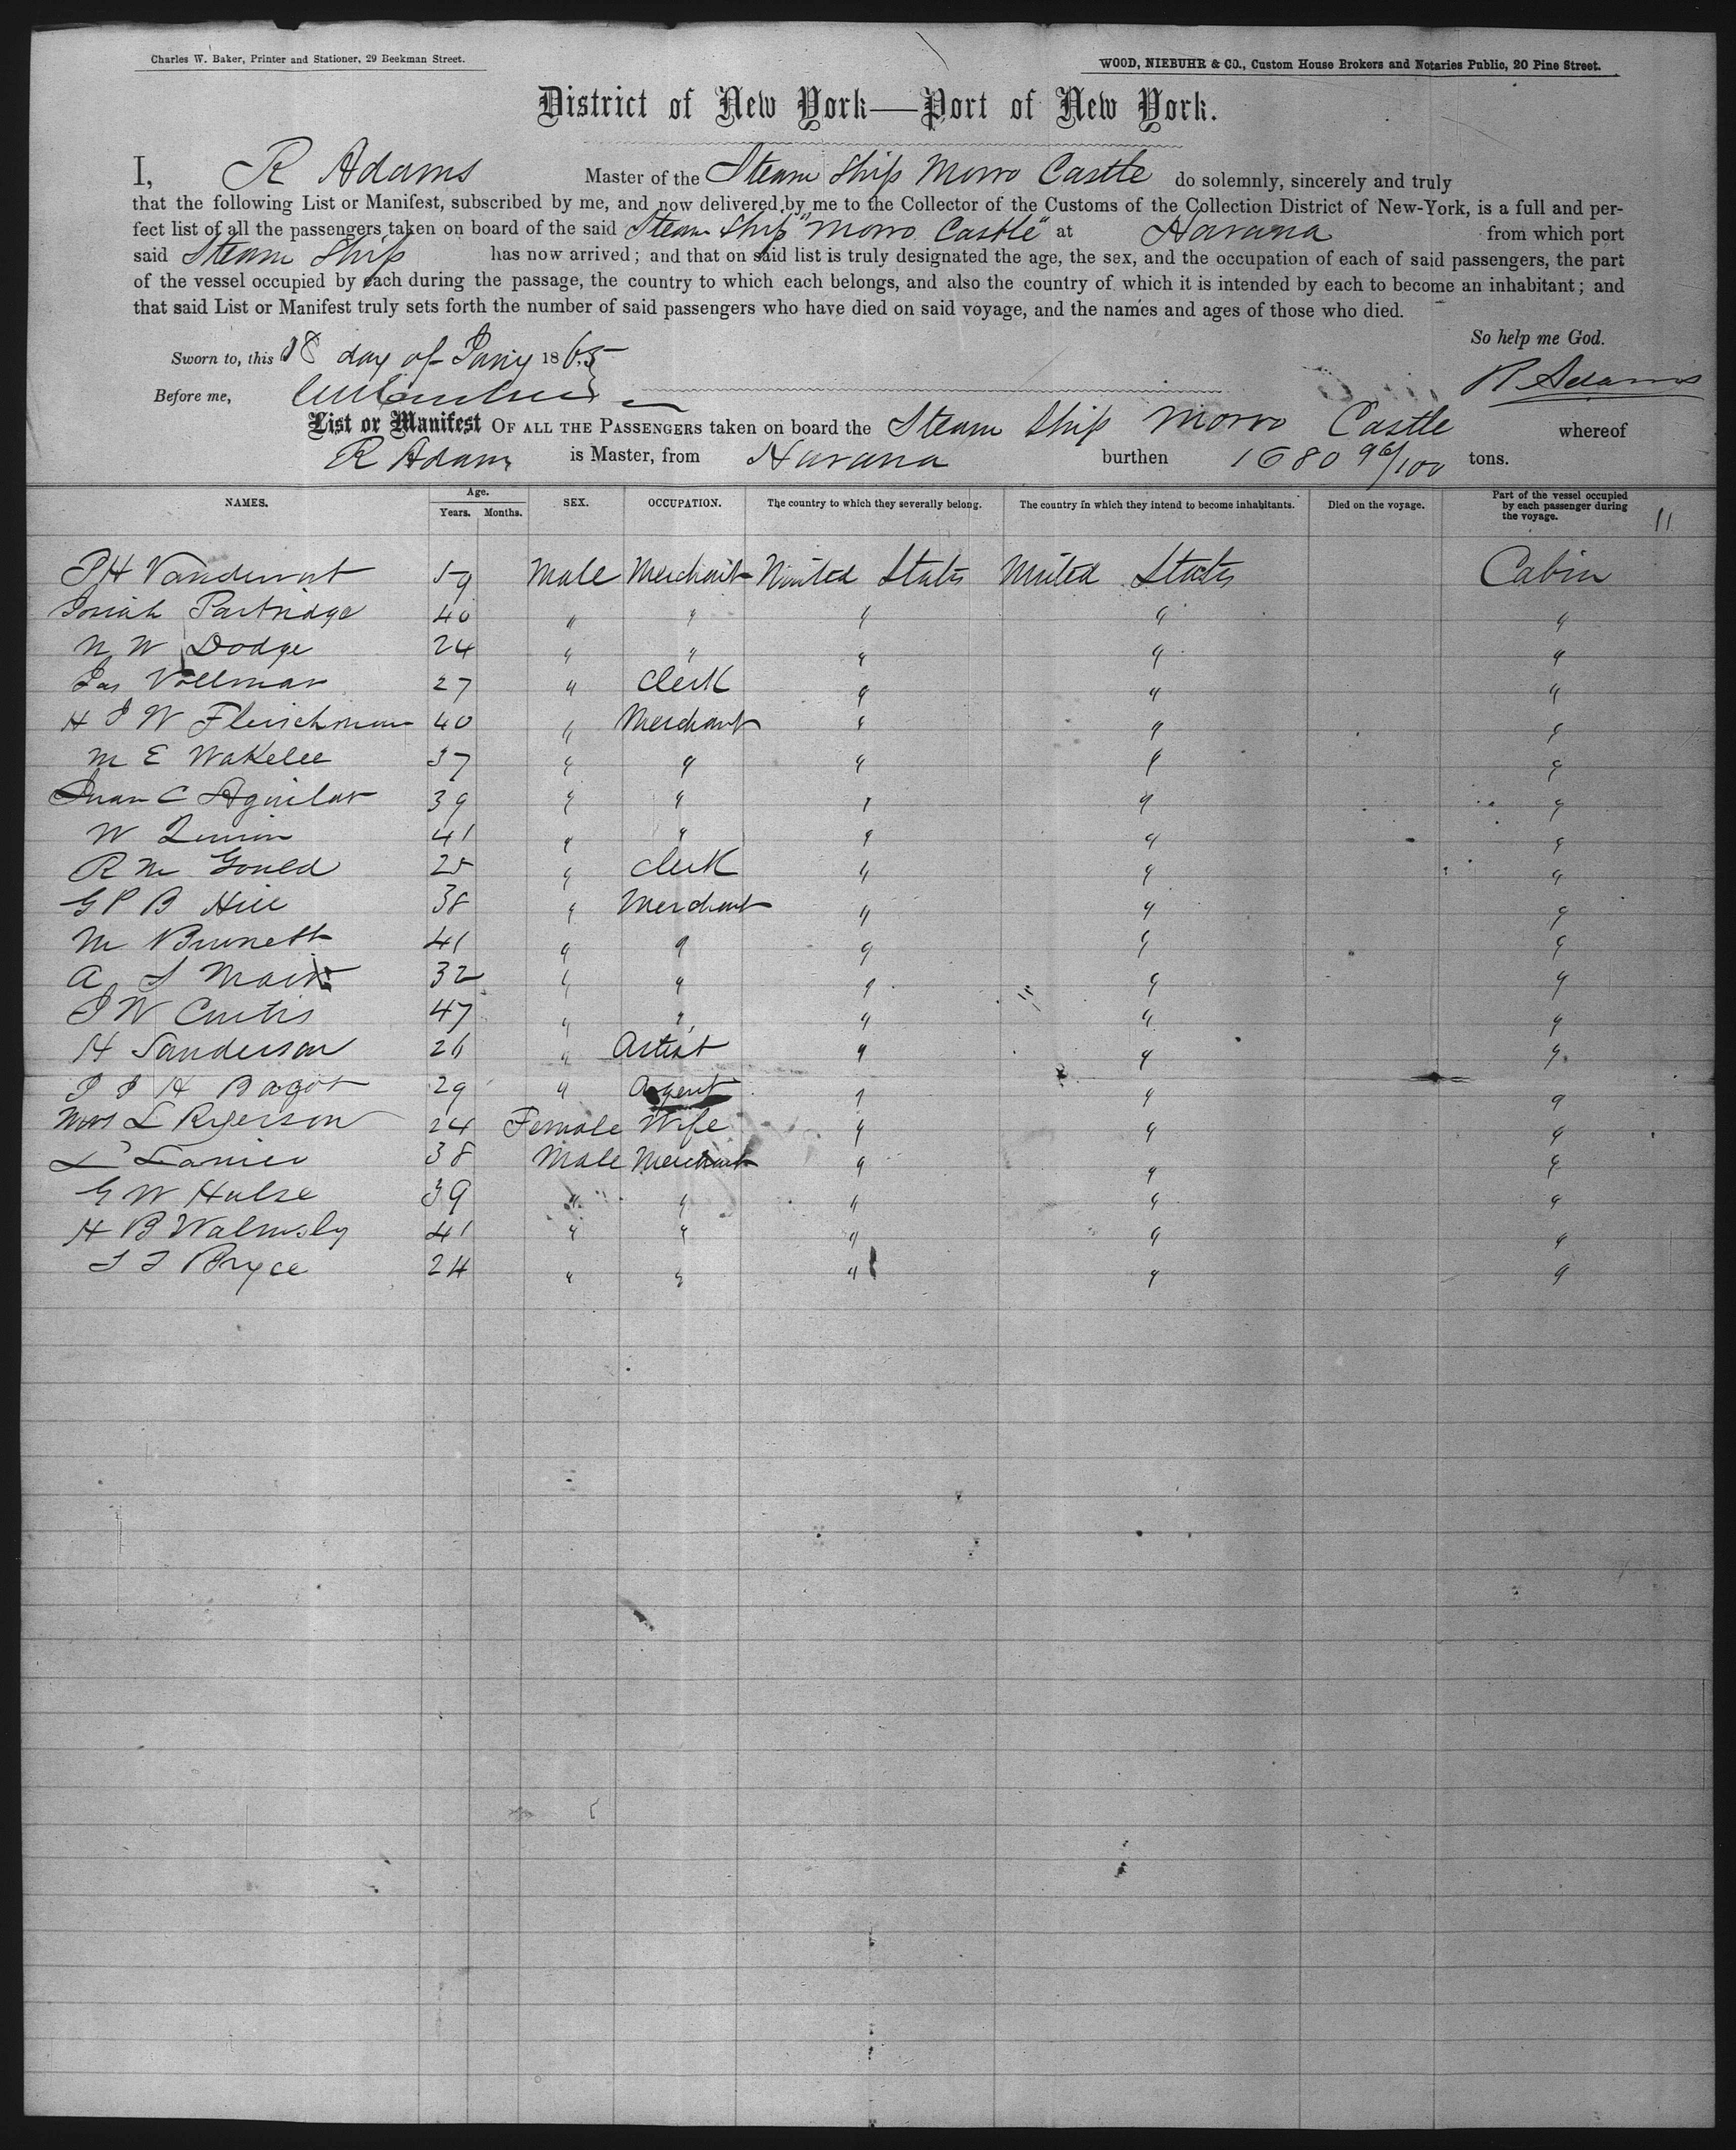 Charles W. Baker, Printer and Stationer, 29 Beekman Street.
WOOD, NIEBUHR & CO., Custom House Brokers and Notaries Public, 20 Pine Street.
District of New York—Port of New York.
I, R Adams Master of the Steam Ship Morro Castle do solemnly, sincerely and truly
that the following List or Manifest, subscribed by me, and now delivered by me to the Collector of the Customs of the Collection District of New-York, is a full and per-
fect list of all the passengers taken on board of the said Steam Ship "Morro Castle" at Havana from which port
said Steam Ship has now arrived; and that on said list is truly designated the age, the sex, and the occupation of each of said passengers, the part
of the vessel occupied by each during the passage, the country to which each belongs, and also the country of which it is intended by each to become an inhabitant; and
that said List or Manifest truly sets forth the number of said passengers who have died on said voyage, and the names and ages of those who died.
So help me God.
Sworn to, this 18 day of Jany 1865
R Adams
Before me,
List or Manifest OF ALL THE PASSENGERS taken on board the Steam Ship Morro Castle whereof
R Adams is Master, from Havana burthen 1680 96/100 tons.
NAMES. Age. Years. Months. SEX. OCCUPATION. The country to which they severally belong. The country in which they intend to become inhabitants. Died on the voyage. Part of the vessel occupied by each passenger during the voyage. 11
P H Vandervort 59 Male Merchant United States United States Cabin
Josiah Partridge 40 " " " " "
N W Dodge 24 " " " " "
Jas Vollmar 27 " Clerk " " "
H J W Fleischman 40 " Merchant " " "
M E Wakelee 37 " " " " "
Juan C Aguilar 39 " " " " "
W 41 " " " " "
R M Gould 25 " Clerk " " "
G P B Hill 38 " Merchant " " "
M Burnett 41 " " " " "
A S 32 " " " " "
J W Curtis 47 " " " " "
H Sanderson 26 " Artist " " "
J J H Bagot 29 " Agent " " "
Mrs L Ryerson 24 Female Wife " " "
L Lanier 38 Male Merchant " " "
G W Hulse 39 " " " " "
H B Walmsly 41 " " " " "
Bryce 24 " " " " "